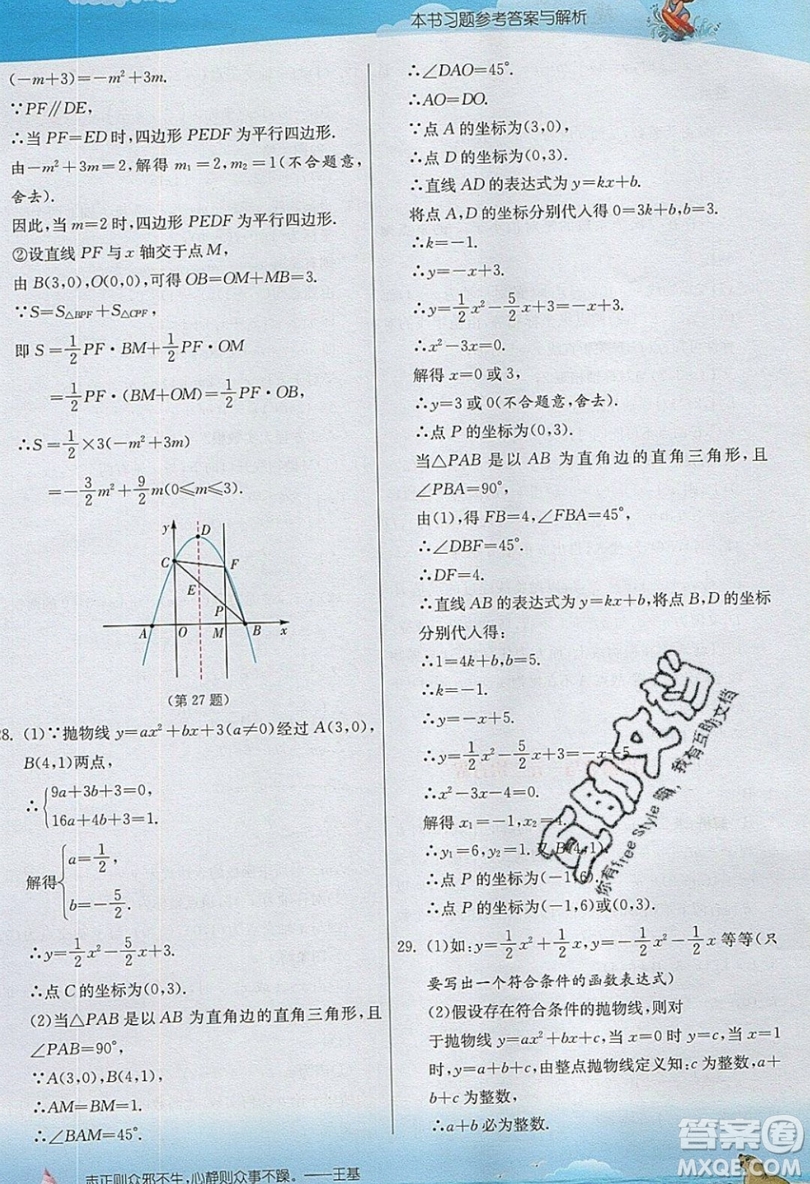 本书习题参考答案与解析
(-m+3)=-m²+3m.
∵PF∥DE,
∴当 PF=ED 时,四边形 PEDF 为平行四边形.
由-m²+3m=2,解得 m₁=2,m₂=1(不合题意,
舍去).
因此,当 m=2 时,四边形 PEDF 为平行四边形.
②设直线 PF 与 x 轴交于点 M,
由 B(3,0),O(0,0),可得 OB=OM+MB=3.
∵S=S△BPF+S△CPF,
即 S=1/2 PF·BM+1/2 PF·OM
=1/2 PF·(BM+OM)=1/2 PF·OB,
∴S=1/2×3(-m²+3m)
=-3/2 m²+9/2 m(0≤m≤3).
y
D
C
F
E
P
A
O
M
B
x
(第 27 题)
28. (1)∵抛物线 y=ax²+bx+3(a≠0)经过 A(3,0),
B(4,1)两点,
∴{9a+3b+3=0,
16a+4b+3=1.
解得{a=1/2,
b=-5/2.
∴y=1/2 x²-5/2 x+3.
∴点 C 的坐标为(0,3).
(2)当△PAB 是以 AB 为直角边的直角三角形,且
∠PAB=90°,
∵A(3,0),B(4,1),
∴AM=BM=1.
∴∠BAM=45°.
∴∠DAO=45°.
∴AO=DO.
∵点 A 的坐标为(3,0),
∴点 D 的坐标为(0,3).
∴直线 AD 的表达式为 y=kx+b.
将点 A,D 的坐标分别代入得 0=3k+b,b=3.
∴k=-1.
∴y=-x+3.
∴y=1/2 x²-5/2 x+3=-x+3.
∴x²-3x=0.
解得 x=0 或 3,
∴y=3 或 0(不合题意,舍去).
∴点 P 的坐标为(0,3).
当△PAB 是以 AB 为直角边的直角三角形,且
∠PBA=90°,
由(1),得 FB=4,∠FBA=45°,
∴∠DBF=45°.
∴DF=4.
∴直线 AB 的表达式为 y=kx+b,将点 B,D 的坐标
分别代入得:
∴1=4k+b,b=5.
∴k=-1.
∴y=-x+5.
∴y=1/2 x²-5/2 x+3=-x+5.
∴x²-3x-4=0.
解得 x₁=-1,x₂=4.
∴y₁=6,y₂=1.又 B(4,1),
∴点 P 的坐标为(-1,6).
∴点 P 的坐标为(-1,6)或(0,3).
29. (1)如:y=1/2 x²+1/2 x,y=-1/2 x²-1/2 x 等等(只
要写出一个符合条件的函数表达式)
(2)假设存在符合条件的抛物线,则对
于抛物线 y=ax²+bx+c,当 x=0 时 y=c,当 x=1
时,y=a+b+c,由整点抛物线定义知:c 为整数,a+
b+c 为整数,
∴a+b 必为整数.
志正则众邪不生,心静则众事不躁。——王基
互助文档
你有Free Style 嘞,我有互助文档
答案圈
MXQE.COM